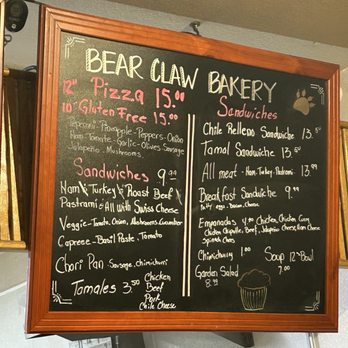 BEAR CLAW BAKERY
12" Pizza 15.00
10" Gluten Free 15.00
Peperoni-Pineapple-Peppers-Onion
Ham-Tomate-Garlic-Olives Sausage
Jalapeño-Mushrooms
Sandwiches 9.99
Ham & Turkey & Roast Beef
Pastrami & All with Swiss Cheese
Veggie-Tomato, Onions, Mushrooms, Cucumber
Caprese-Basil Paste-Tomato
Chori Pan-Sausage, chimichurri
Tamales 3.50
Chicken
Beef
Pork
Chile Cheese
Sandwiches
Chile Relleno Sandwiche 13.5
Tamal Sandwiche 13.5
All meat-Ham, Turkey, Pastrami 13.99
Breakfast Sandwiche 9.99
Patty, egg-Bacon, Cheese
Empanadas Chicken, Chicken Curry
Chicken Chipotle, Beef, Jalapeño Cheese, Ham Cheese
Spinach
Chimichurry 1.00
Soup 12oz Bowl
7.00
Garden Salad
8.50